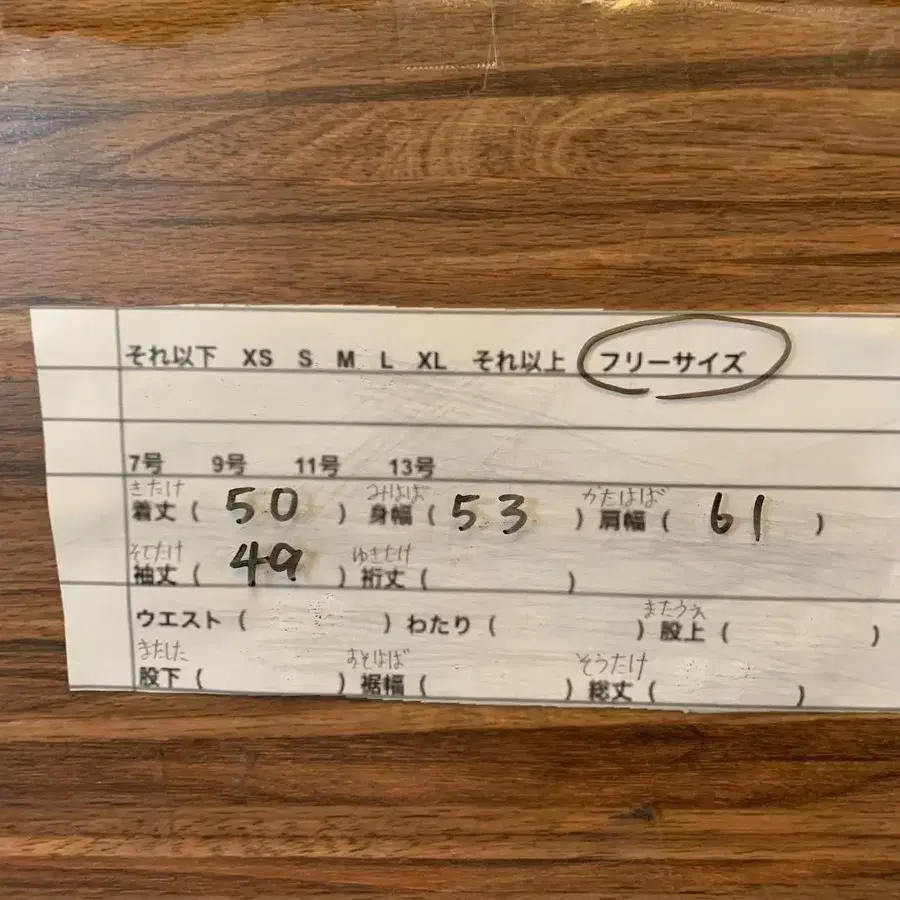 それ以下 XS S M L XL それ以上 フリーサイズ
7号 9号 11号 13号
きたけ みはば かたはば
着丈 ( 50 ) 身幅 ( 53 ) 肩幅 ( 61 )
そでたけ ゆきたけ
袖丈 ( 49 ) 裄丈 ( )
またうえ
ウエスト ( ) わたり ( ) 股上 ( )
またした すそはば そうたけ
股下 ( ) 裾幅 ( ) 総丈 ( )